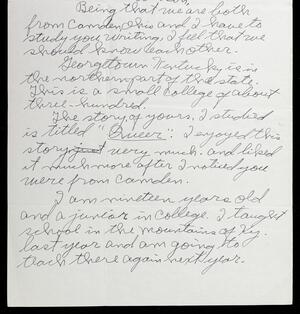 Being that we are both
from Camden, Ohio and I have to
study you writing, I feel that we
should know each other.
Georgetown Kentucky is in
the northern part of the state.
This is a small college of about
three-hundred.
The story of yours, I studied
is titled "Queer". I enjoyed this
story just very much and liked
it much more after I noticed you
were from Camden.
I am nineteen years old
and a junior in college. I taught
school in the mountains of Ky.
last year and am going to
teach there again next year.